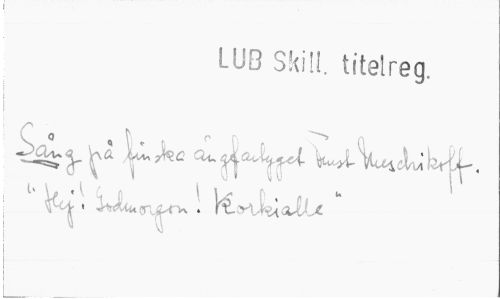 LUB Skill. titelreg.
Sång på finska ångfartyget Furst Menschikoff.
"Hej! Godmorgon! Korkialle"